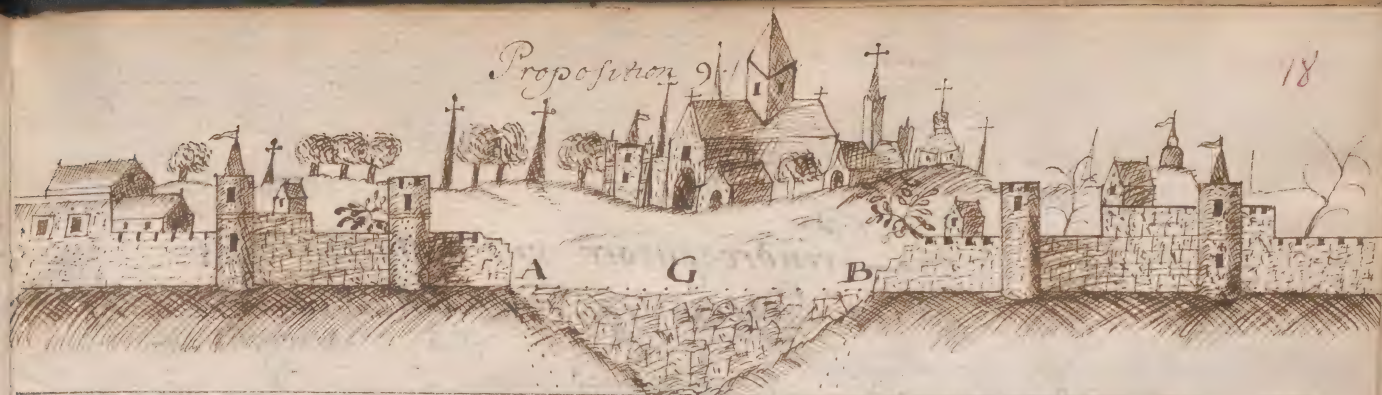 Proposition 9
18
A G B